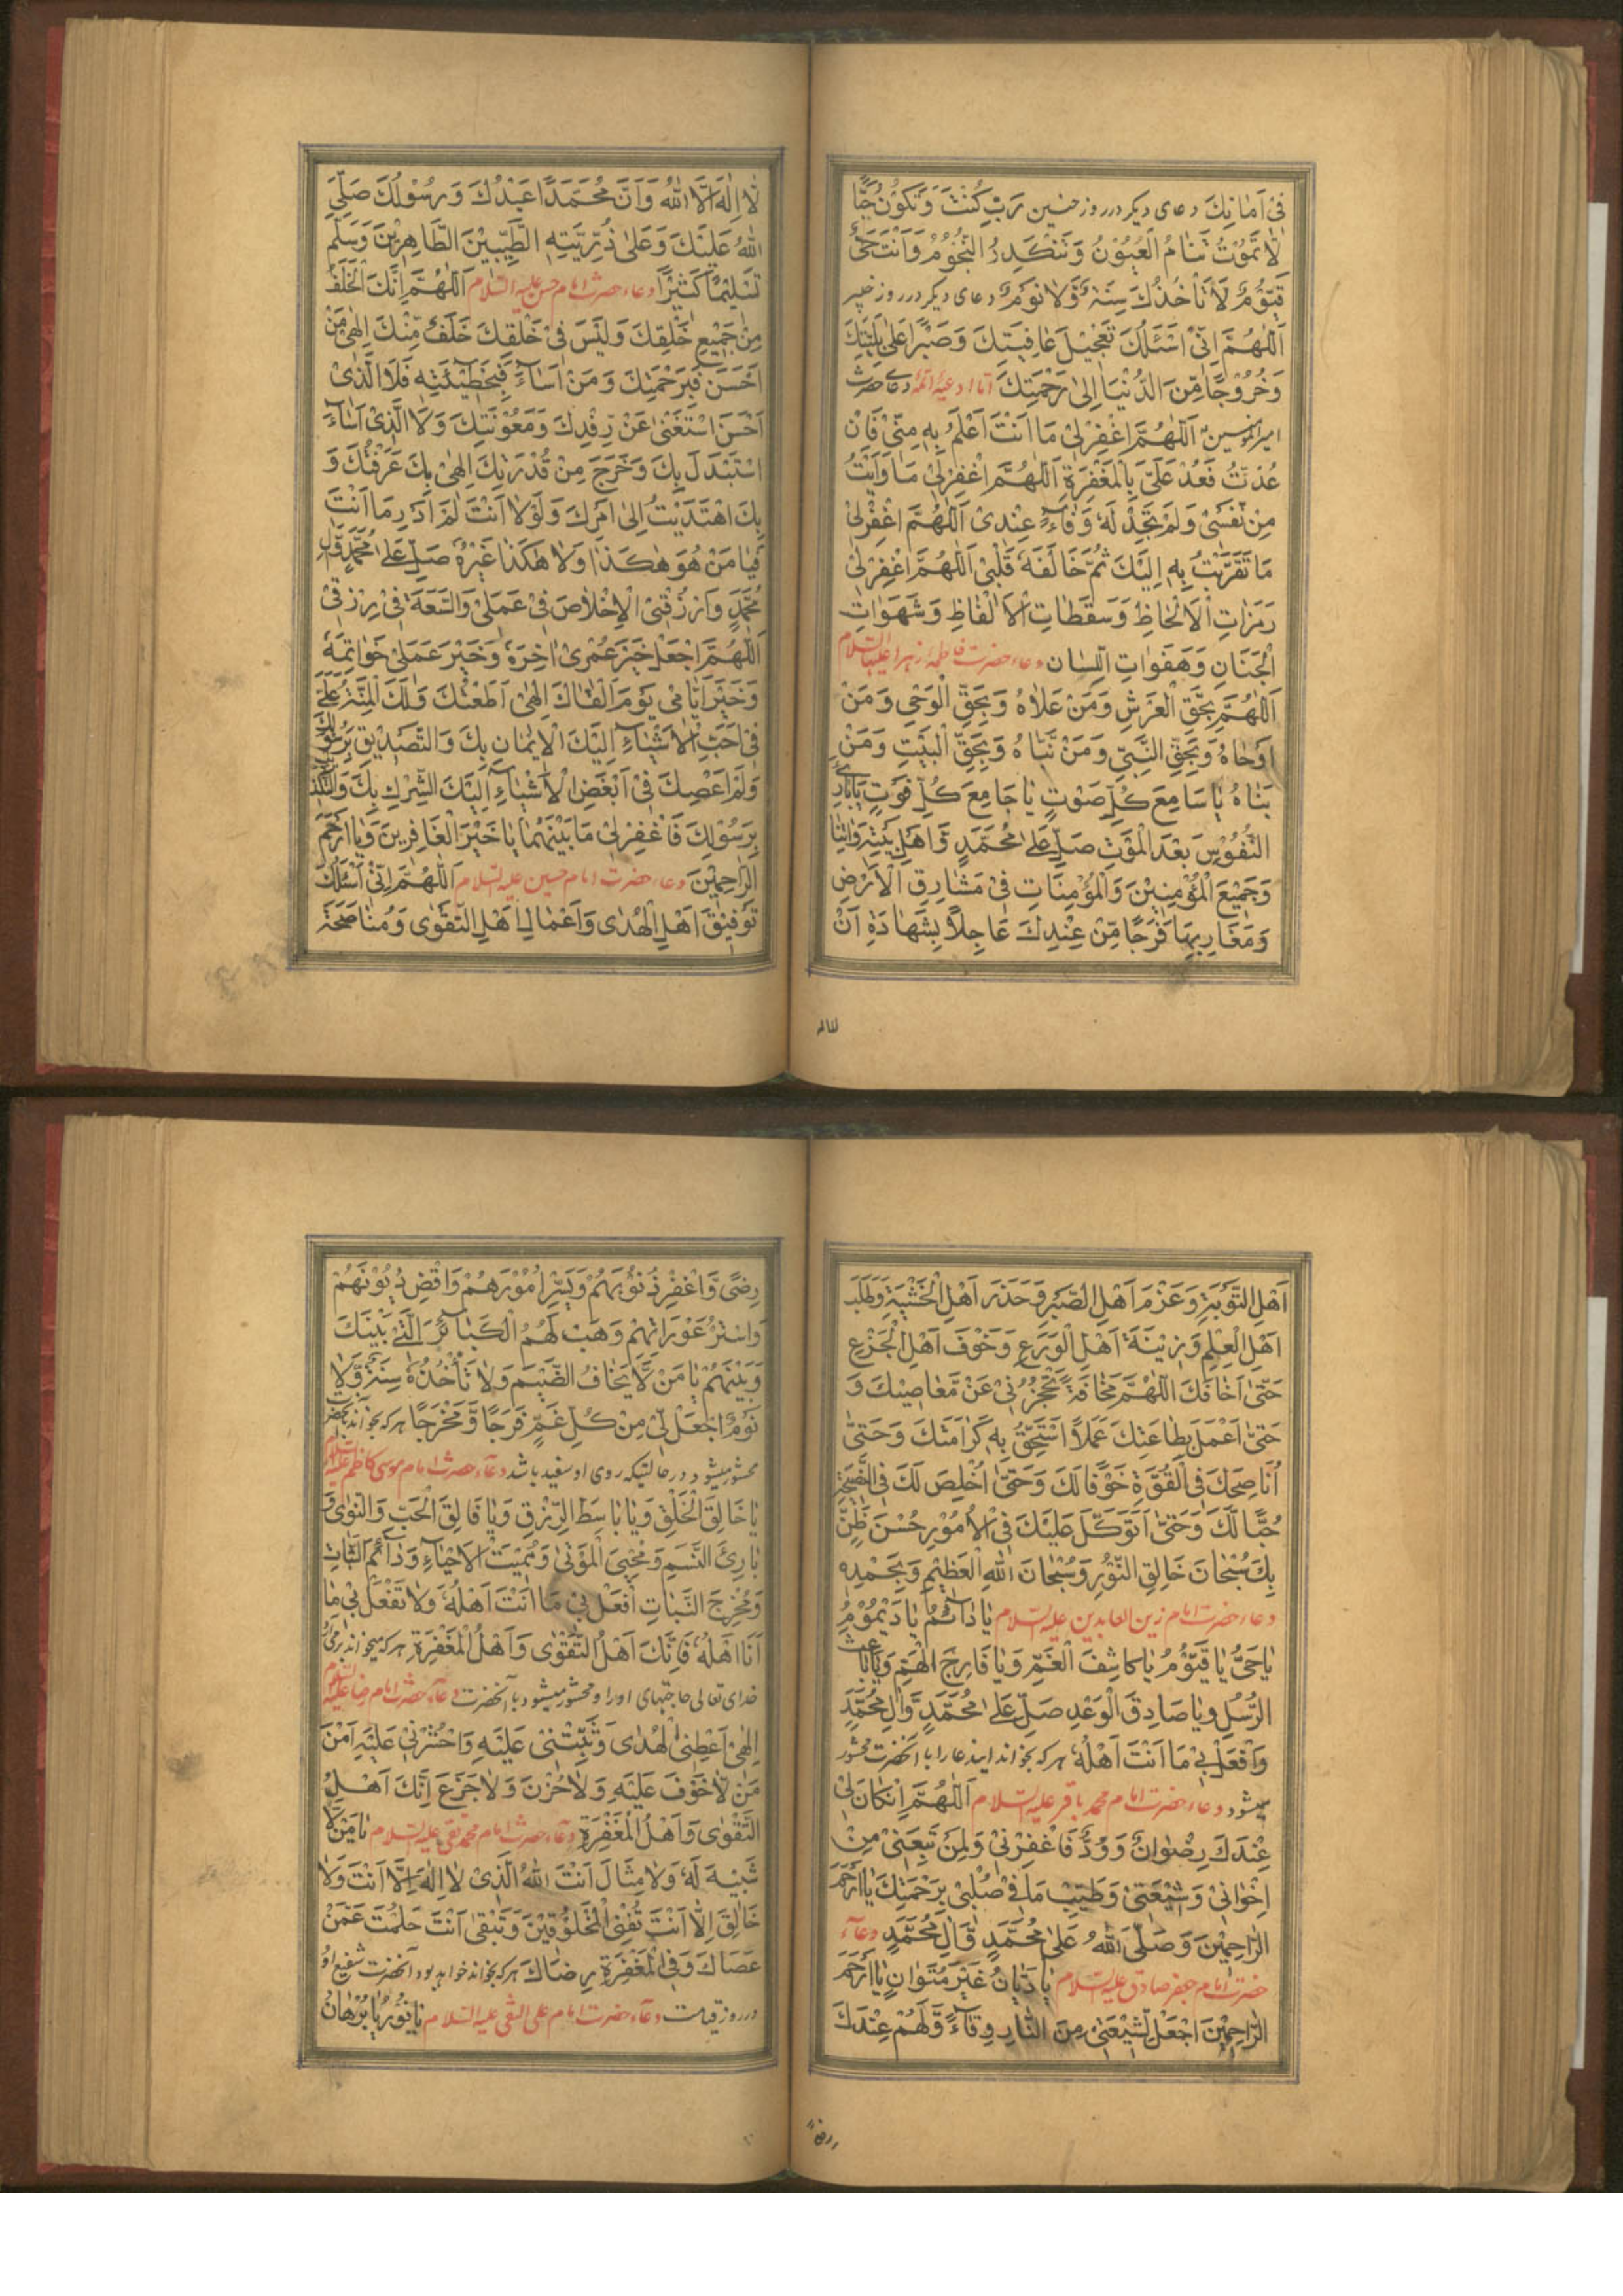 فِیْ اَمَانِكَ دعای دیگر در روز حنین رَبِّ كُنْتَ وَتَكُوْنُ حَیًّا
لَا تَمُوْتُ تَنَامُ الْعُیُوْنُ وَتَنْكَدِرُ النُّجُوْمُ وَاَنْتَ حَیٌّ
قَیُّوْمٌ لَا تَاْخُذُكَ سِنَةٌ وَّلَا نَوْمٌ دعای دیگر در روز خیبر
اَللّٰهُمَّ اِنِّیْ اَسْئَلُكَ تَعْجِیْلَ عَافِیَتِكَ وَصَبْرًا عَلٰی بَلِیَّتِكَ
وَخُرُوْجًا مِّنَ الدُّنْیَا اِلٰی رَحْمَتِكَ اما ادعیهٔ ائمه دعای حضرت
امیرالمومنین اَللّٰهُمَّ اغْفِرْ لِیْ مَا اَنْتَ اَعْلَمُ بِهٖ مِنِّیْ فَاِنْ
عُدْتُ فَعُدْ عَلَیَّ بِالْمَغْفِرَةِ اَللّٰهُمَّ اغْفِرْ لِیْ مَا وَاَیْتُ
مِنْ نَّفْسِیْ وَلَمْ تَجِدْ لَهٗ وَفَاءً عِنْدِیْ اَللّٰهُمَّ اغْفِرْ لِیْ
مَا تَقَرَّبْتُ بِهٖ اِلَیْكَ ثُمَّ خَالَفَهٗ قَلْبِیْ اَللّٰهُمَّ اغْفِرْ لِیْ
رَمَزَاتِ الْاَلْحَاظِ وَسَقَطَاتِ الْاَلْفَاظِ وَشَهَوَاتِ
الْجَنَانِ وَهَفَوَاتِ اللِّسَانِ دعاء حضرت فاطمه زهرا علیها السلام
اَللّٰهُمَّ بِحَقِّ الْعَرْشِ وَمَنْ عَلَاهُ وَبِحَقِّ الْوَحْیِ وَمَنْ
اَوْحَاهُ وَبِحَقِّ النَّبِیِّ وَمَنْ نَبَّاهُ وَبِحَقِّ الْبَیْتِ وَمَنْ
بَنَاهُ یَا سَامِعَ كُلِّ صَوْتٍ یَا جَامِعَ كُلِّ فَوْتٍ یَا بَارِئَ
النُّفُوْسِ بَعْدَ الْمَوْتِ صَلِّ عَلٰی مُحَمَّدٍ وَّاَهْلِ بَیْتِهٖ وَاٰتِنَا
وَجَمِیْعَ الْمُؤْمِنِیْنَ وَالْمُؤْمِنَاتِ فِیْ مَشَارِقِ الْاَرْضِ
وَمَغَارِبِهَا فَرَجًا مِّنْ عِنْدِكَ عَاجِلًا بِشَهَادَةِ اَنْ
لَا اِلٰهَ اِلَّا اللّٰهُ وَاَنَّ مُحَمَّدًا عَبْدُكَ وَرَسُوْلُكَ صَلَّی
اللّٰهُ عَلَیْكَ وَعَلٰی ذُرِّیَّتِهِ الطَّیِّبِیْنَ الطَّاهِرِیْنَ وَسَلَّمَ
تَسْلِیْمًا كَثِیْرًا دعاء حضرت امام حسن علیه السلام اَللّٰهُمَّ اِنَّكَ الْخَلَفُ
مِنْ جَمِیْعِ خَلْقِكَ وَلَیْسَ فِیْ خَلْقِكَ خَلَفٌ مِّنْكَ اِلٰهِیْ مَنْ
اَحْسَنَ فَبِرَحْمَتِكَ وَمَنْ اَسَاءَ فَبِخَطِیْئَتِهٖ فَلَا الَّذِیْ
اَحْسَنَ اسْتَغْنٰی عَنْ رِفْدِكَ وَمَعُوْنَتِكَ وَلَا الَّذِیْ اَسَاءَ
اسْتَبْدَلَ بِكَ وَخَرَجَ مِنْ قُدْرَتِكَ اِلٰهِیْ بِكَ عَرَفْتُكَ وَ
بِكَ اهْتَدَیْتُ اِلٰی اَمْرِكَ وَلَوْلَا اَنْتَ لَمْ اَدْرِ مَا اَنْتَ
فَیَا مَنْ هُوَ هٰكَذَا وَلَا هٰكَذَا غَیْرُهٗ صَلِّ عَلٰی مُحَمَّدٍ وَّاٰلِ
مُحَمَّدٍ وَارْزُقْنِی الْاِخْلَاصَ فِیْ عَمَلِیْ وَالسَّعَةَ فِیْ رِزْقِیْ
اَللّٰهُمَّ اجْعَلْ خَیْرَ عُمْرِیْ اٰخِرَهٗ وَخَیْرَ عَمَلِیْ خَوَاتِمَهٗ
وَخَیْرَ اَیَّامِیْ یَوْمَ اَلْقَاكَ اِلٰهِیْ اَطَعْتُكَ وَلَكَ الْمِنَّةُ عَلَیَّ
فِیْ اَحَبِّ الْاَشْیَاءِ اِلَیْكَ الْاِیْمَانِ بِكَ وَالتَّصْدِیْقِ بِرَسُوْلِكَ
وَلَمْ اَعْصِكَ فِیْ اَبْغَضِ الْاَشْیَاءِ اِلَیْكَ الشِّرْكِ بِكَ وَالتَّكْذِیْبِ
بِرَسُوْلِكَ فَاغْفِرْ لِیْ مَا بَیْنَهُمَا یَا خَیْرَ الْغَافِرِیْنَ وَیَا اَرْحَمَ
الرَّاحِمِیْنَ دعاء حضرت امام حسین علیه السلام اَللّٰهُمَّ اِنِّیْ اَسْئَلُكَ
تَوْفِیْقَ اَهْلِ الْهُدٰی وَاَعْمَالَ اَهْلِ التَّقْوٰی وَمُنَاصَحَةَ
اَهْلِ التَّوْبَةِ وَعَزْمَ اَهْلِ الصَّبْرِ وَحَذَرَ اَهْلِ الْخَشْیَةِ وَطَلَبَ
اَهْلِ الْعِلْمِ وَزِیْنَةَ اَهْلِ الْوَرَعِ وَخَوْفَ اَهْلِ الْجَزَعِ
حَتّٰی اَخَافَكَ اللّٰهُمَّ مَخَافَةً تَحْجُزُنِیْ عَنْ مَّعَاصِیْكَ وَ
حَتّٰی اَعْمَلَ بِطَاعَتِكَ عَمَلًا اَسْتَحِقُّ بِهٖ كَرَامَتَكَ وَحَتّٰی
اُنَاصِحَكَ فِی الْقُوَّةِ خَوْفًا لَكَ وَحَتّٰی اُخْلِصَ لَكَ فِی النَّصِیْحَةِ
حُبًّا لَّكَ وَحَتّٰی اَتَوَكَّلَ عَلَیْكَ فِی الْاُمُوْرِ حُسْنَ ظَنٍّ
بِكَ سُبْحَانَ خَالِقِ النُّوْرِ وَسُبْحَانَ اللّٰهِ الْعَظِیْمِ وَبِحَمْدِهٖ
دعاء حضرت امام زین العابدین علیه السلام یَا دَائِمُ یَا دَیْمُوْمُ
یَا حَیُّ یَا قَیُّوْمُ یَا كَاشِفَ الْغَمِّ وَیَا فَارِجَ الْهَمِّ وَیَا بَاعِثَ
الرُّسُلِ وَیَا صَادِقَ الْوَعْدِ صَلِّ عَلٰی مُحَمَّدٍ وَّاٰلِ مُحَمَّدٍ
وَافْعَلْ بِیْ مَا اَنْتَ اَهْلُهٗ هر که بخواند ایندعا را با آنحضرت محشور
میشود دعاء حضرت امام محمد باقر علیه السلام اَللّٰهُمَّ اِنْ كَانَ لِیْ
عِنْدَكَ رِضْوَانٌ وَوُدٌّ فَاغْفِرْ لِیْ وَلِمَنْ تَبِعَنِیْ مِنْ
اِخْوَانِیْ وَشِیْعَتِیْ وَطَیِّبْ مَا فِیْ صُلْبِیْ بِرَحْمَتِكَ یَا اَرْحَمَ
الرَّاحِمِیْنَ وَصَلَّی اللّٰهُ عَلٰی مُحَمَّدٍ وَّاٰلِ مُحَمَّدٍ دعاء
حضرت امام جعفر صادق علیه السلام یَا دَیَّانُ غَیْرَ مُتَوَانٍ یَا اَرْحَمَ
الرَّاحِمِیْنَ اجْعَلْ لِشِیْعَتِیْ مِنَ النَّارِ وِقَاءً وَّلَهُمْ عِنْدَكَ
رِضًی وَّاغْفِرْ ذُنُوْبَهُمْ وَیَسِّرْ اُمُوْرَهُمْ وَاقْضِ دُیُوْنَهُمْ
وَاسْتُرْ عَوْرَاتِهِمْ وَهَبْ لَهُمُ الْكَبَائِرَ الَّتِیْ بَیْنَكَ
وَبَیْنَهُمْ یَا مَنْ لَّا یَخَافُ الضَّیْمَ وَلَا تَأْخُذُهٗ سِنَةٌ وَّلَا
نَوْمٌ اجْعَلْ لِیْ مِنْ كُلِّ غَمٍّ فَرَجًا وَّمَخْرَجًا هر که بخواند بحضرت
محشور میشود در حالتیکه روی او سفید باشد دعاء حضرت امام موسی کاظم علیه السلام
یَا خَالِقَ الْخَلْقِ وَیَا بَاسِطَ الرِّزْقِ وَیَا فَالِقَ الْحَبِّ وَالنَّوٰی وَ
بَارِئَ النَّسَمِ وَمُحْیِیَ الْمَوْتٰی وَمُمِیْتَ الْاَحْیَاءِ وَدَائِمَ الثَّبَاتِ
وَمُخْرِجَ النَّبَاتِ افْعَلْ بِیْ مَا اَنْتَ اَهْلُهٗ وَلَا تَفْعَلْ بِیْ مَا
اَنَا اَهْلُهٗ فَاِنَّكَ اَهْلُ التَّقْوٰی وَاَهْلُ الْمَغْفِرَةِ هر که میخواند
خدای تعالی حاجتهای او را و محشور میشود با آنحضرت دعاء حضرت امام رضا علیه السلام
اِلٰهِیْ اَعْطِنِی الْهُدٰی وَثَبِّتْنِیْ عَلَیْهِ وَاحْشُرْنِیْ عَلَیْهِ اٰمِنًا اَمْنَ
مَنْ لَّا خَوْفَ عَلَیْهِ وَلَا حُزْنَ وَلَا جَزَعَ اِنَّكَ اَهْلُ
التَّقْوٰی وَاَهْلُ الْمَغْفِرَةِ دعاء حضرت امام محمد تقی علیه السلام یَا مَنْ لَّا
شَبِیْهَ لَهٗ وَلَا مِثَالَ اَنْتَ اللّٰهُ الَّذِیْ لَا اِلٰهَ اِلَّا اَنْتَ وَلَا
خَالِقَ اِلَّا اَنْتَ تُفْنِی الْمَخْلُوْقِیْنَ وَتَبْقٰی اَنْتَ حَلُمْتَ عَمَّنْ
عَصَاكَ وَفِی الْمَغْفِرَةِ رِضَاكَ هر که بخواند خواهد بود آنحضرت شفیع او
در روز قیامت دعاء حضرت امام علی النقی علیه السلام یَا نُوْرُ یَا بُرْهَانُ